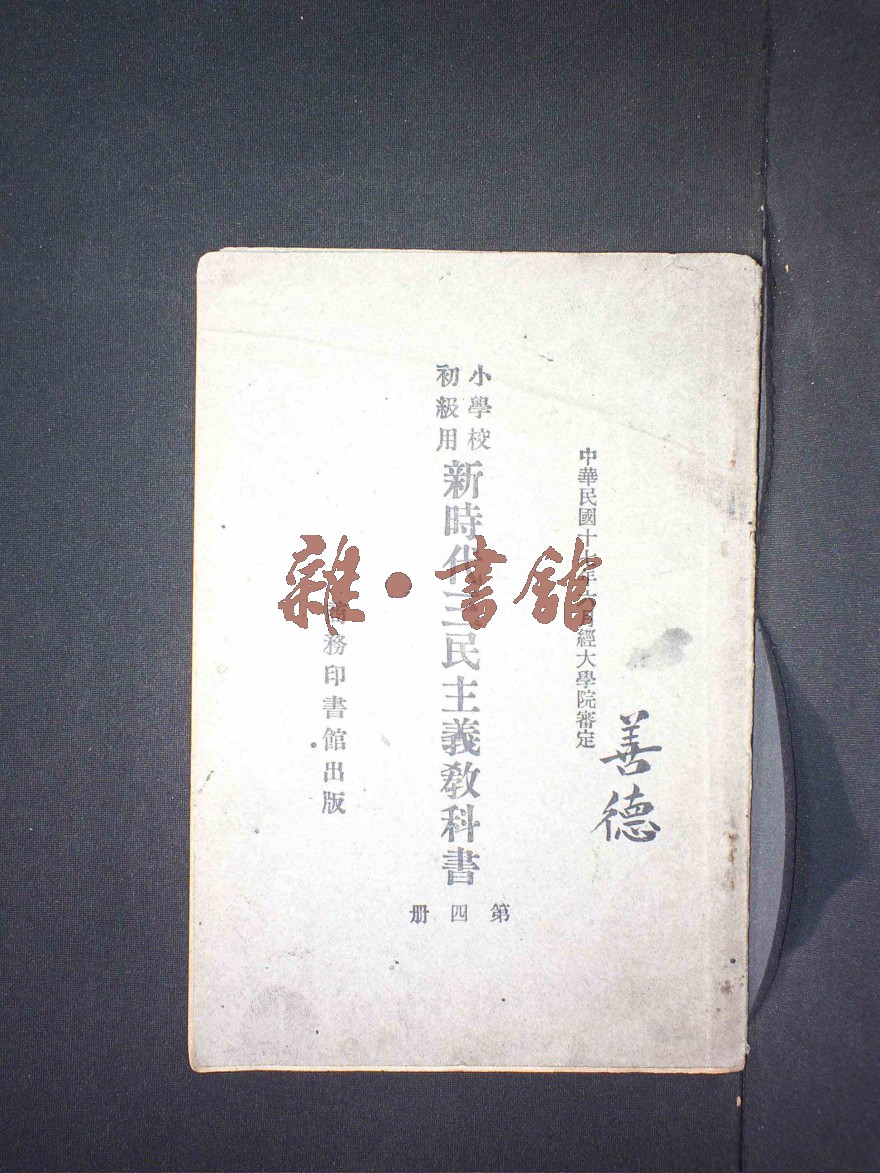 中華民國十七年六月經大學院審定
善德
小學校
初級用
新時代三民主義教科書
第四册
商務印書館出版
雜·書館